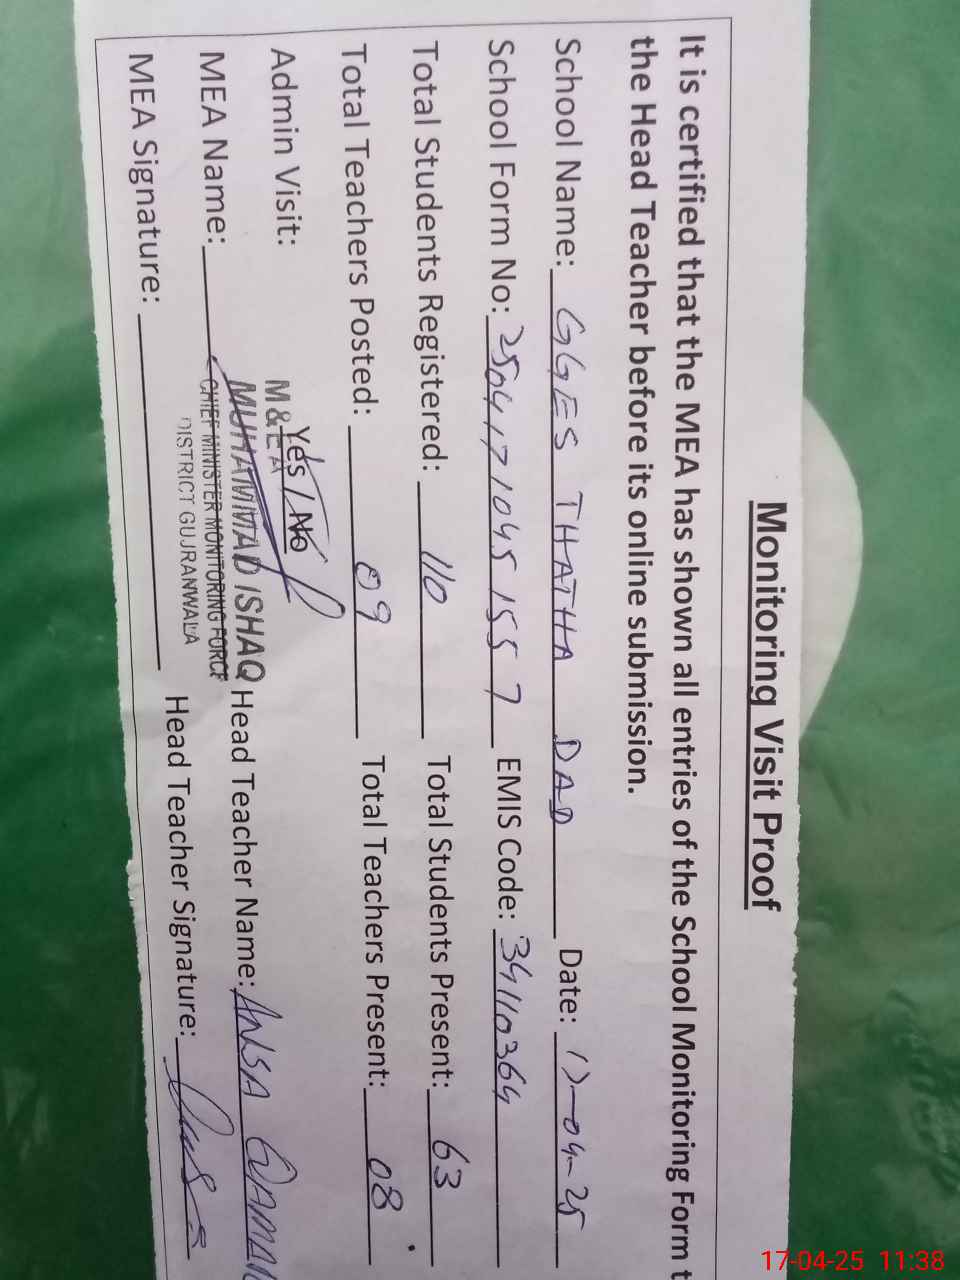 Monitoring Visit Proof
It is certified that the MEA has shown all entries of the School Monitoring Form t
the Head Teacher before its online submission.
School Name: GGES THATHA DAD Date: 17-04-25
School Form No: 2504171045 1557 EMIS Code: 34110364
Total Students Registered: 110 Total Students Present: 63
Total Teachers Posted: 09 Total Teachers Present: 08
Admin Visit: Yes / No
M & EA
MEA Name: MUHAMMAD ISHAQ Head Teacher Name: ANSA
CHIEF MINISTER MONITORING FORCE
DISTRICT GUJRANWALA
MEA Signature: Head Teacher Signature:
17-04-25 11:38